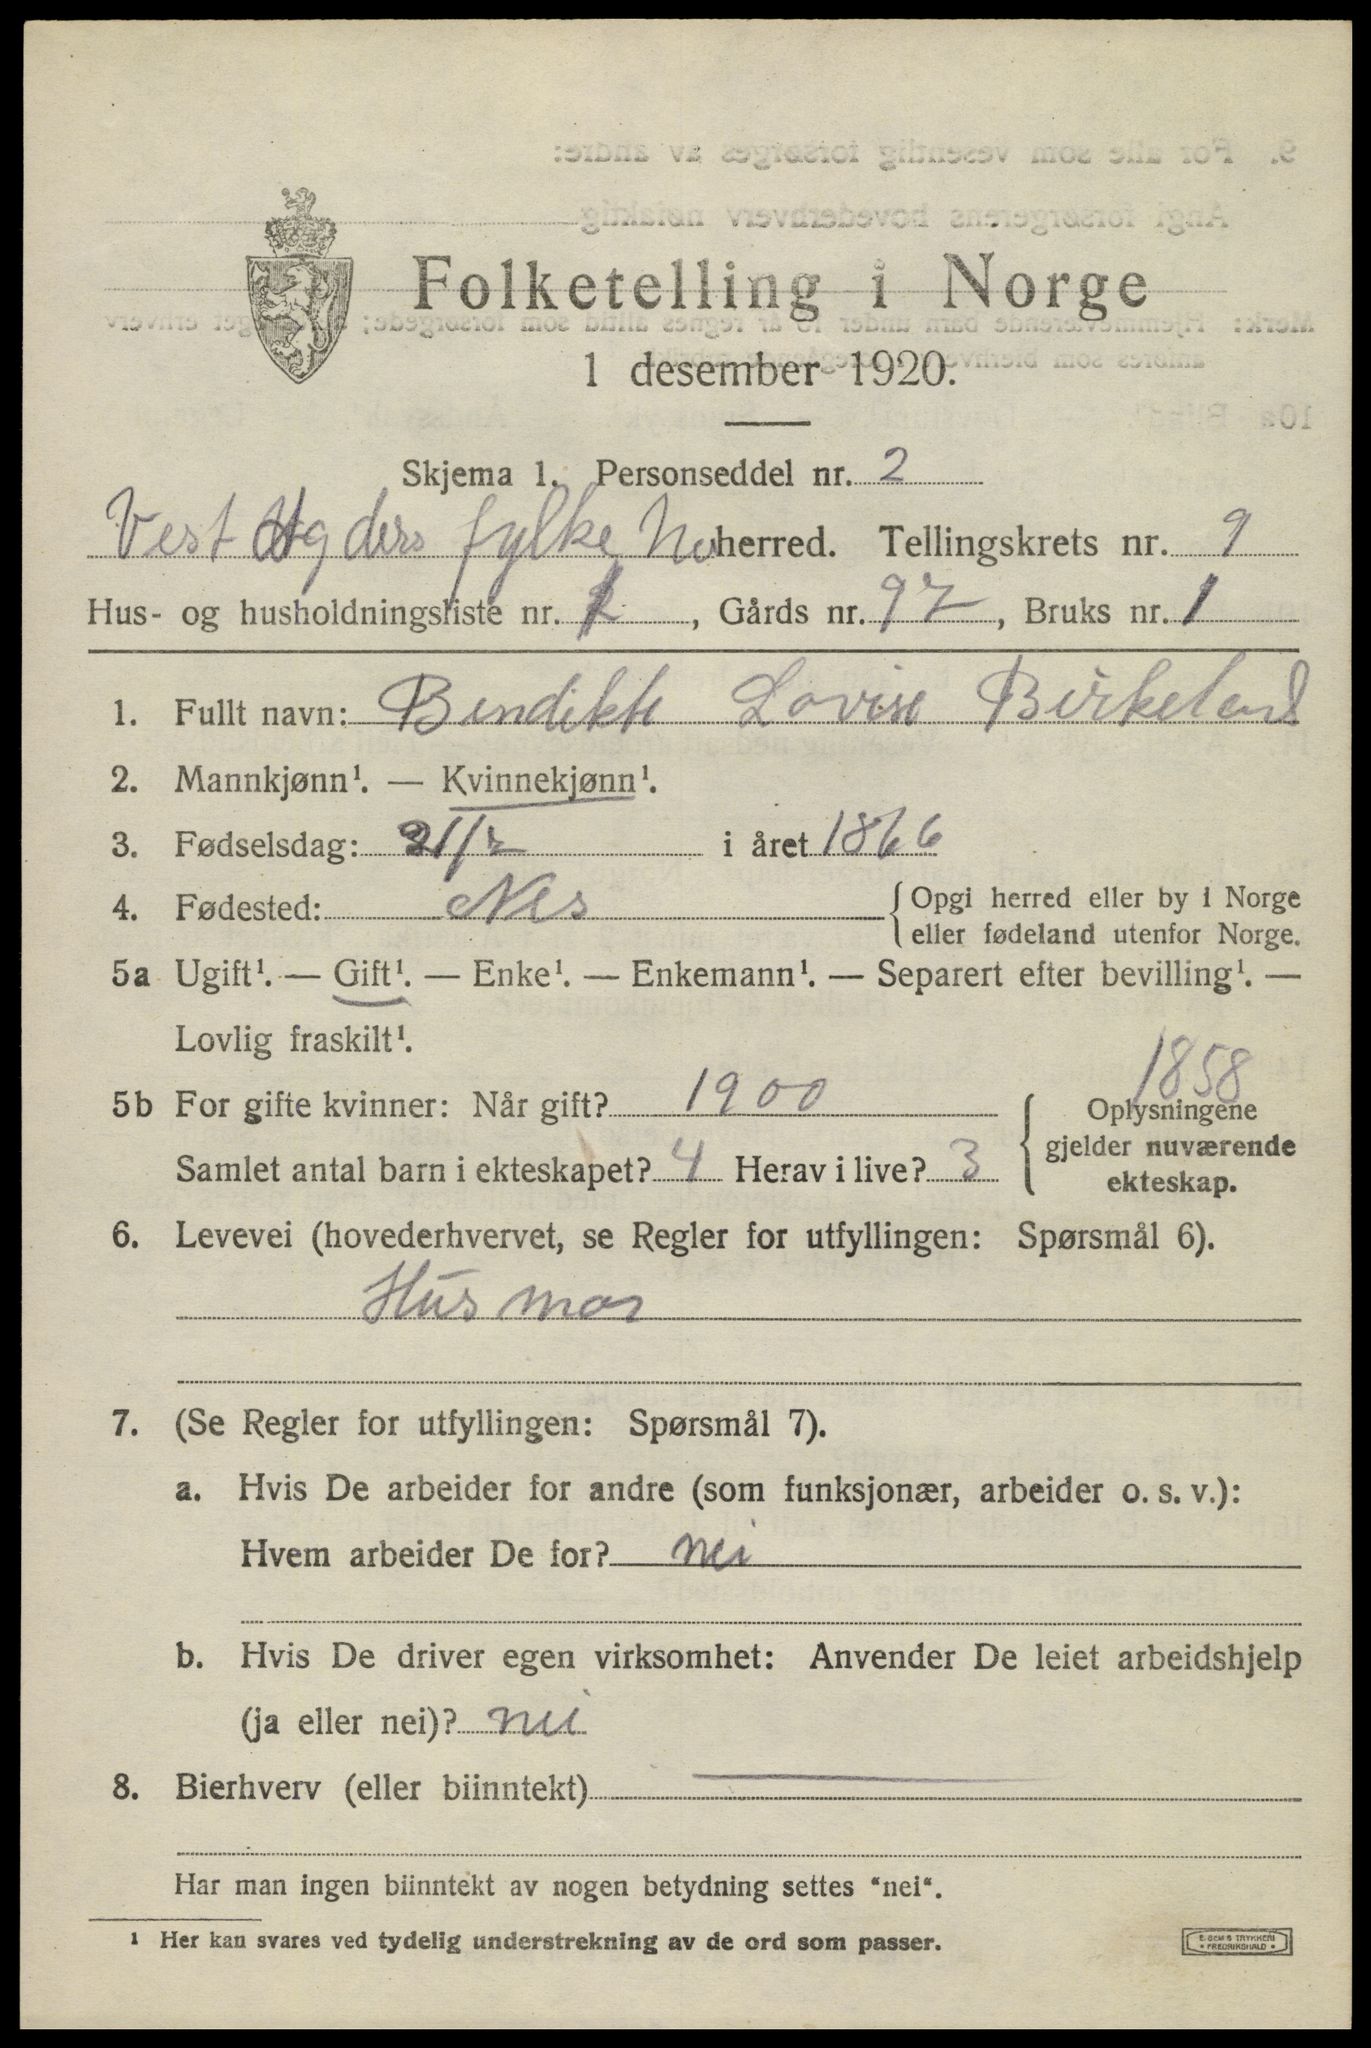 Folketelling i Norge
1 desember 1920.
Skjema 1. Personseddel nr. 2
Vest Agders fylke herred. Tellingskrets nr. 9
Hus- og husholdningsliste nr. , Gårds nr. 97, Bruks nr. 1
1. Fullt navn: Bendikte Lovise Birkeland
2. Mannkjønn¹. — Kvinnekjønn¹.
3. Fødselsdag: i året 1866
4. Fødested: Nes {Opgi herred eller by i Norge
eller fødeland utenfor Norge.
5a Ugift¹. — Gift¹. — Enke¹. — Enkemann¹. — Separert efter bevilling¹. —
Lovlig fraskilt¹.
1858
5b For gifte kvinner: Når gift? 1900 { Oplysningene
gjelder nuværende
Samlet antal barn i ekteskapet? 4 Herav i live? 3 ekteskap.
6. Levevei (hovederhvervet, se Regler for utfyllingen: Spørsmål 6).
Husmor
7. (Se Regler for utfyllingen: Spørsmål 7).
a. Hvis De arbeider for andre (som funksjonær, arbeider o. s. v.):
Hvem arbeider De for? nei
b. Hvis De driver egen virksomhet: Anvender De leiet arbeidshjelp
(ja eller nei)? nei
8. Bierhverv (eller biinntekt)
Har man ingen biinntekt av nogen betydning settes "nei".
¹ Her kan svares ved tydelig understrekning av de ord som passer.
E. SEM'S TRYKKERI
• FREDRIKSHALD •